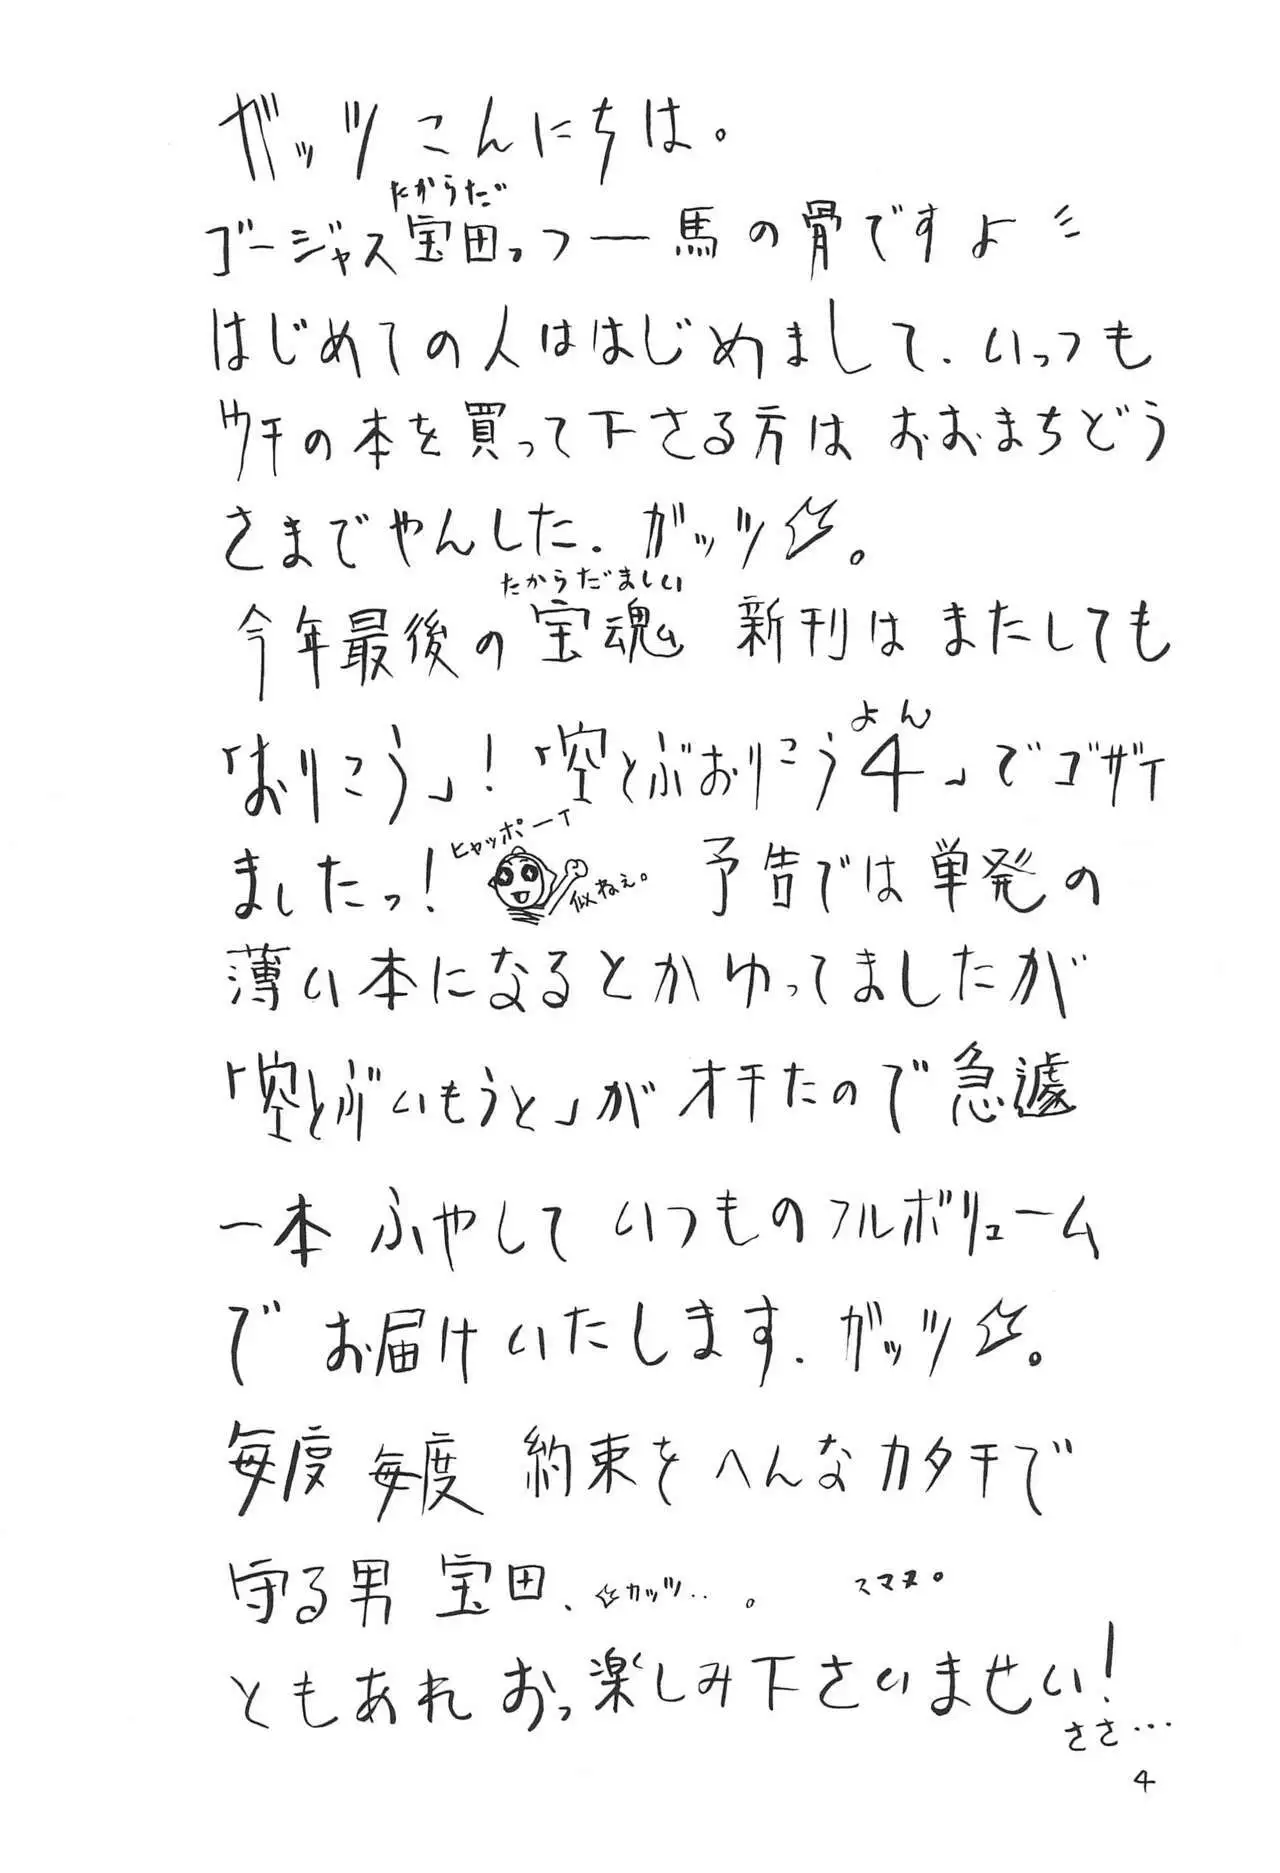 ガッツ こんにちは。
たからだ
ゴージャス宝田っつー馬の骨ですよ
はじめての人ははじめまして、いっつも
ウチの本を買って下さる方は おおまちどう
さまでやんした、ガッツ☆。
たからだましい
今年最後の宝魂 新刊は またしても
よん
「おりこう」!「空とぶおりこう4」でゴザイ
ましたっ!
ヒャッポーイ
似ねぇ。
予告では単発の
薄い本になるとかゆってましたが
「空とぶいもうと」がオチたので急遽
一本 ふやして いつものフルボリューム
で お届けいたします、ガッツ☆。
毎度 毎度 約束を へんなカタチで
守る男 宝田、☆ガッツ‥。 スマヌ。
ともあれ おっ楽しみ下さいませい!
ささ…
4